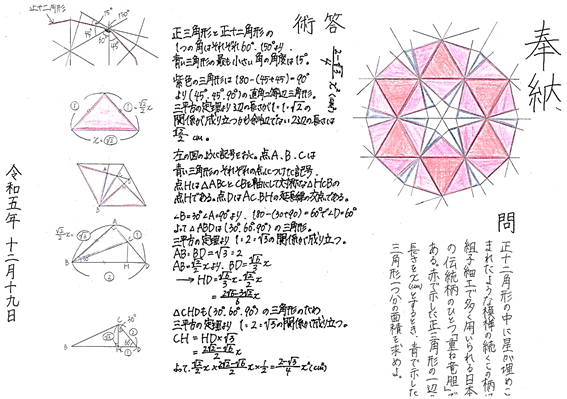 奉納
問
正十二角形の中に星が埋めこ
まれたような模様の続くこの柄は
組子細工で多く用いられる日本
の伝統柄のひとつ「重ね竜胆」で
ある。赤で示した正三角形の一辺の
長さをxcmとするとき、青で示した
三角形一つ分の面積を求めよ。
答
2-√3/4 x²(cm²)
術
正三角形と正十二角形の
1つの角はそれぞれ60°、150°より、
青い三角形の最も小さい角の角度は15°。
紫色の三角形は180-(45+45)=90°
より(45°,45°,90°)の直角二等辺三角形。
三平方の定理より3辺の長さが1:1:√2の
関係が成り立つから
√2/2 x cm。
左の図のように記号をおく。点A、B、Cは
青い三角形のそれぞれの点につけた記号。
点Hは△ABCとCBを軸にして対称な△HCBの
点Hである。点DはAC、BHの延長線の交点である。
∠B=30°∠A=90°より、180-(30+90)=60°∠D=60°
よって△ABDは(30°,60°,90°)の三角形。
三平方の定理より1:2:√3の関係が成り立つ。
AB:BD=√3:2
AB=√2/2 xより、BD=√6/3 x
→ HD=√6/3 x-√2/2 x
=2√6-3√2/6 x
△CHDも(30°,60°,90°)の三角形のため
三平方の定理より1:2:√3の関係が成り立つ。
CH=HD×√3
=2√2-√6/2 x
よって、√2/2 x×2√2-√6/2 x×1/2=2-√3/4 x²(cm²)
正十二角形
150°
45°
15°
45°
①
①
√2/2 x
x=√2
A
B
C
H
D
②
30°
令和五年 十二月十九日